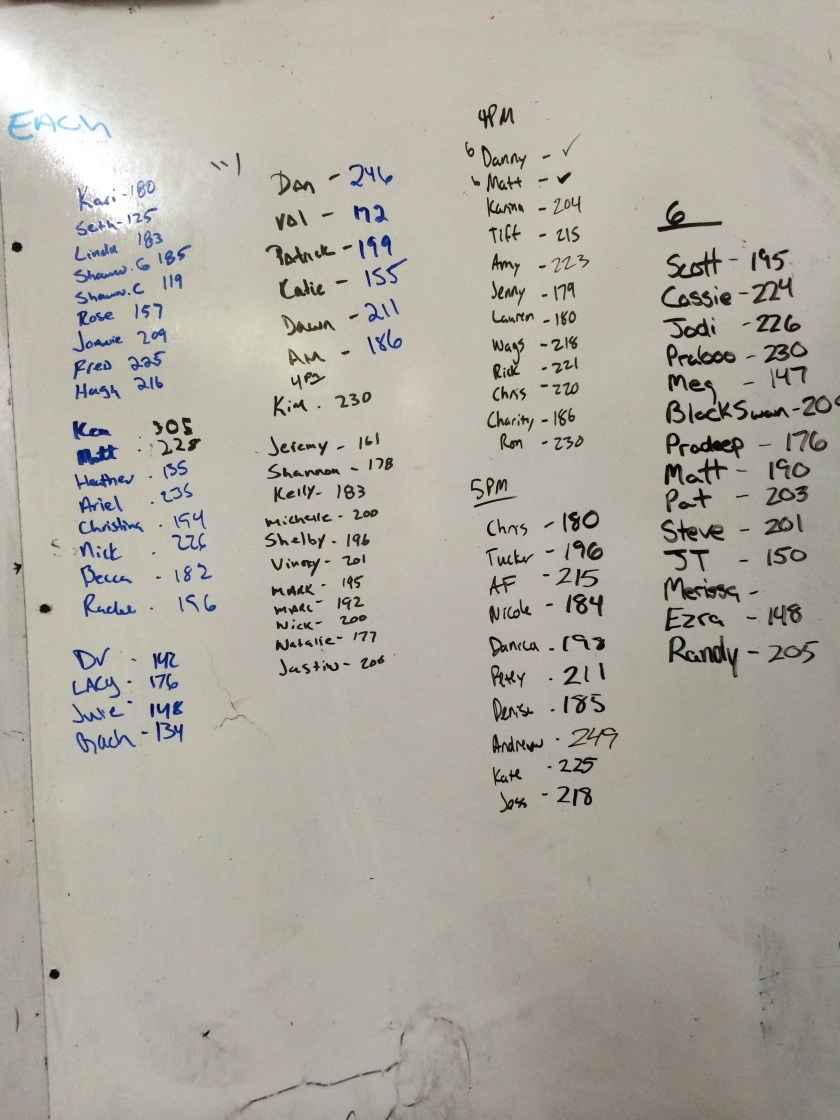 EACH
Kari - 180
Seth - 125
Linda 183
Shawn. G 185
Shawn. C 119
Rose 157
Joanie 209
Fred 225
Hugh 216
Ken . 305
Matt . 228
Heather . 135
Ariel . 235
Christina . 194
Nick . 226
Becca . 182
Rachel . 196
DV - 142
LACY - 176
Julie - 148
- 134
Dan - 246
Val - 172
Patrick - 199
Katie - 155
Dawn - 211
AM - 186
Kim . 230
Jeremy - 161
Shannon - 178
Kelly - 183
michelle - 200
Shelby - 196
Vinny - 201
MARK - 195
MARC - 192
Nick - 200
Natalie - 177
Justin - 206
4PM
6 Danny - ✓
6 Matt - ✓
Karina - 204
Tiff - 215
Amy - 223
Jenny - 179
Lauren - 180
Wags - 218
Rick - 221
Chris - 220
Charity - 186
Ron - 230
5PM
Chris - 180
Tucker - 196
AF - 215
Nicole - 184
Danica - 198
Petey . 211
Denise . 185
Andrew . 249
Kate . 225
Joss - 218
6
Scott - 195
Cassie - 224
Jodi - 226
Praboo - 230
Meg - 147
Black Swan - 20
Pradeep - 176
Matt - 190
Pat - 203
Steve - 201
JT - 150
Merissa -
Ezra - 148
Randy - 205